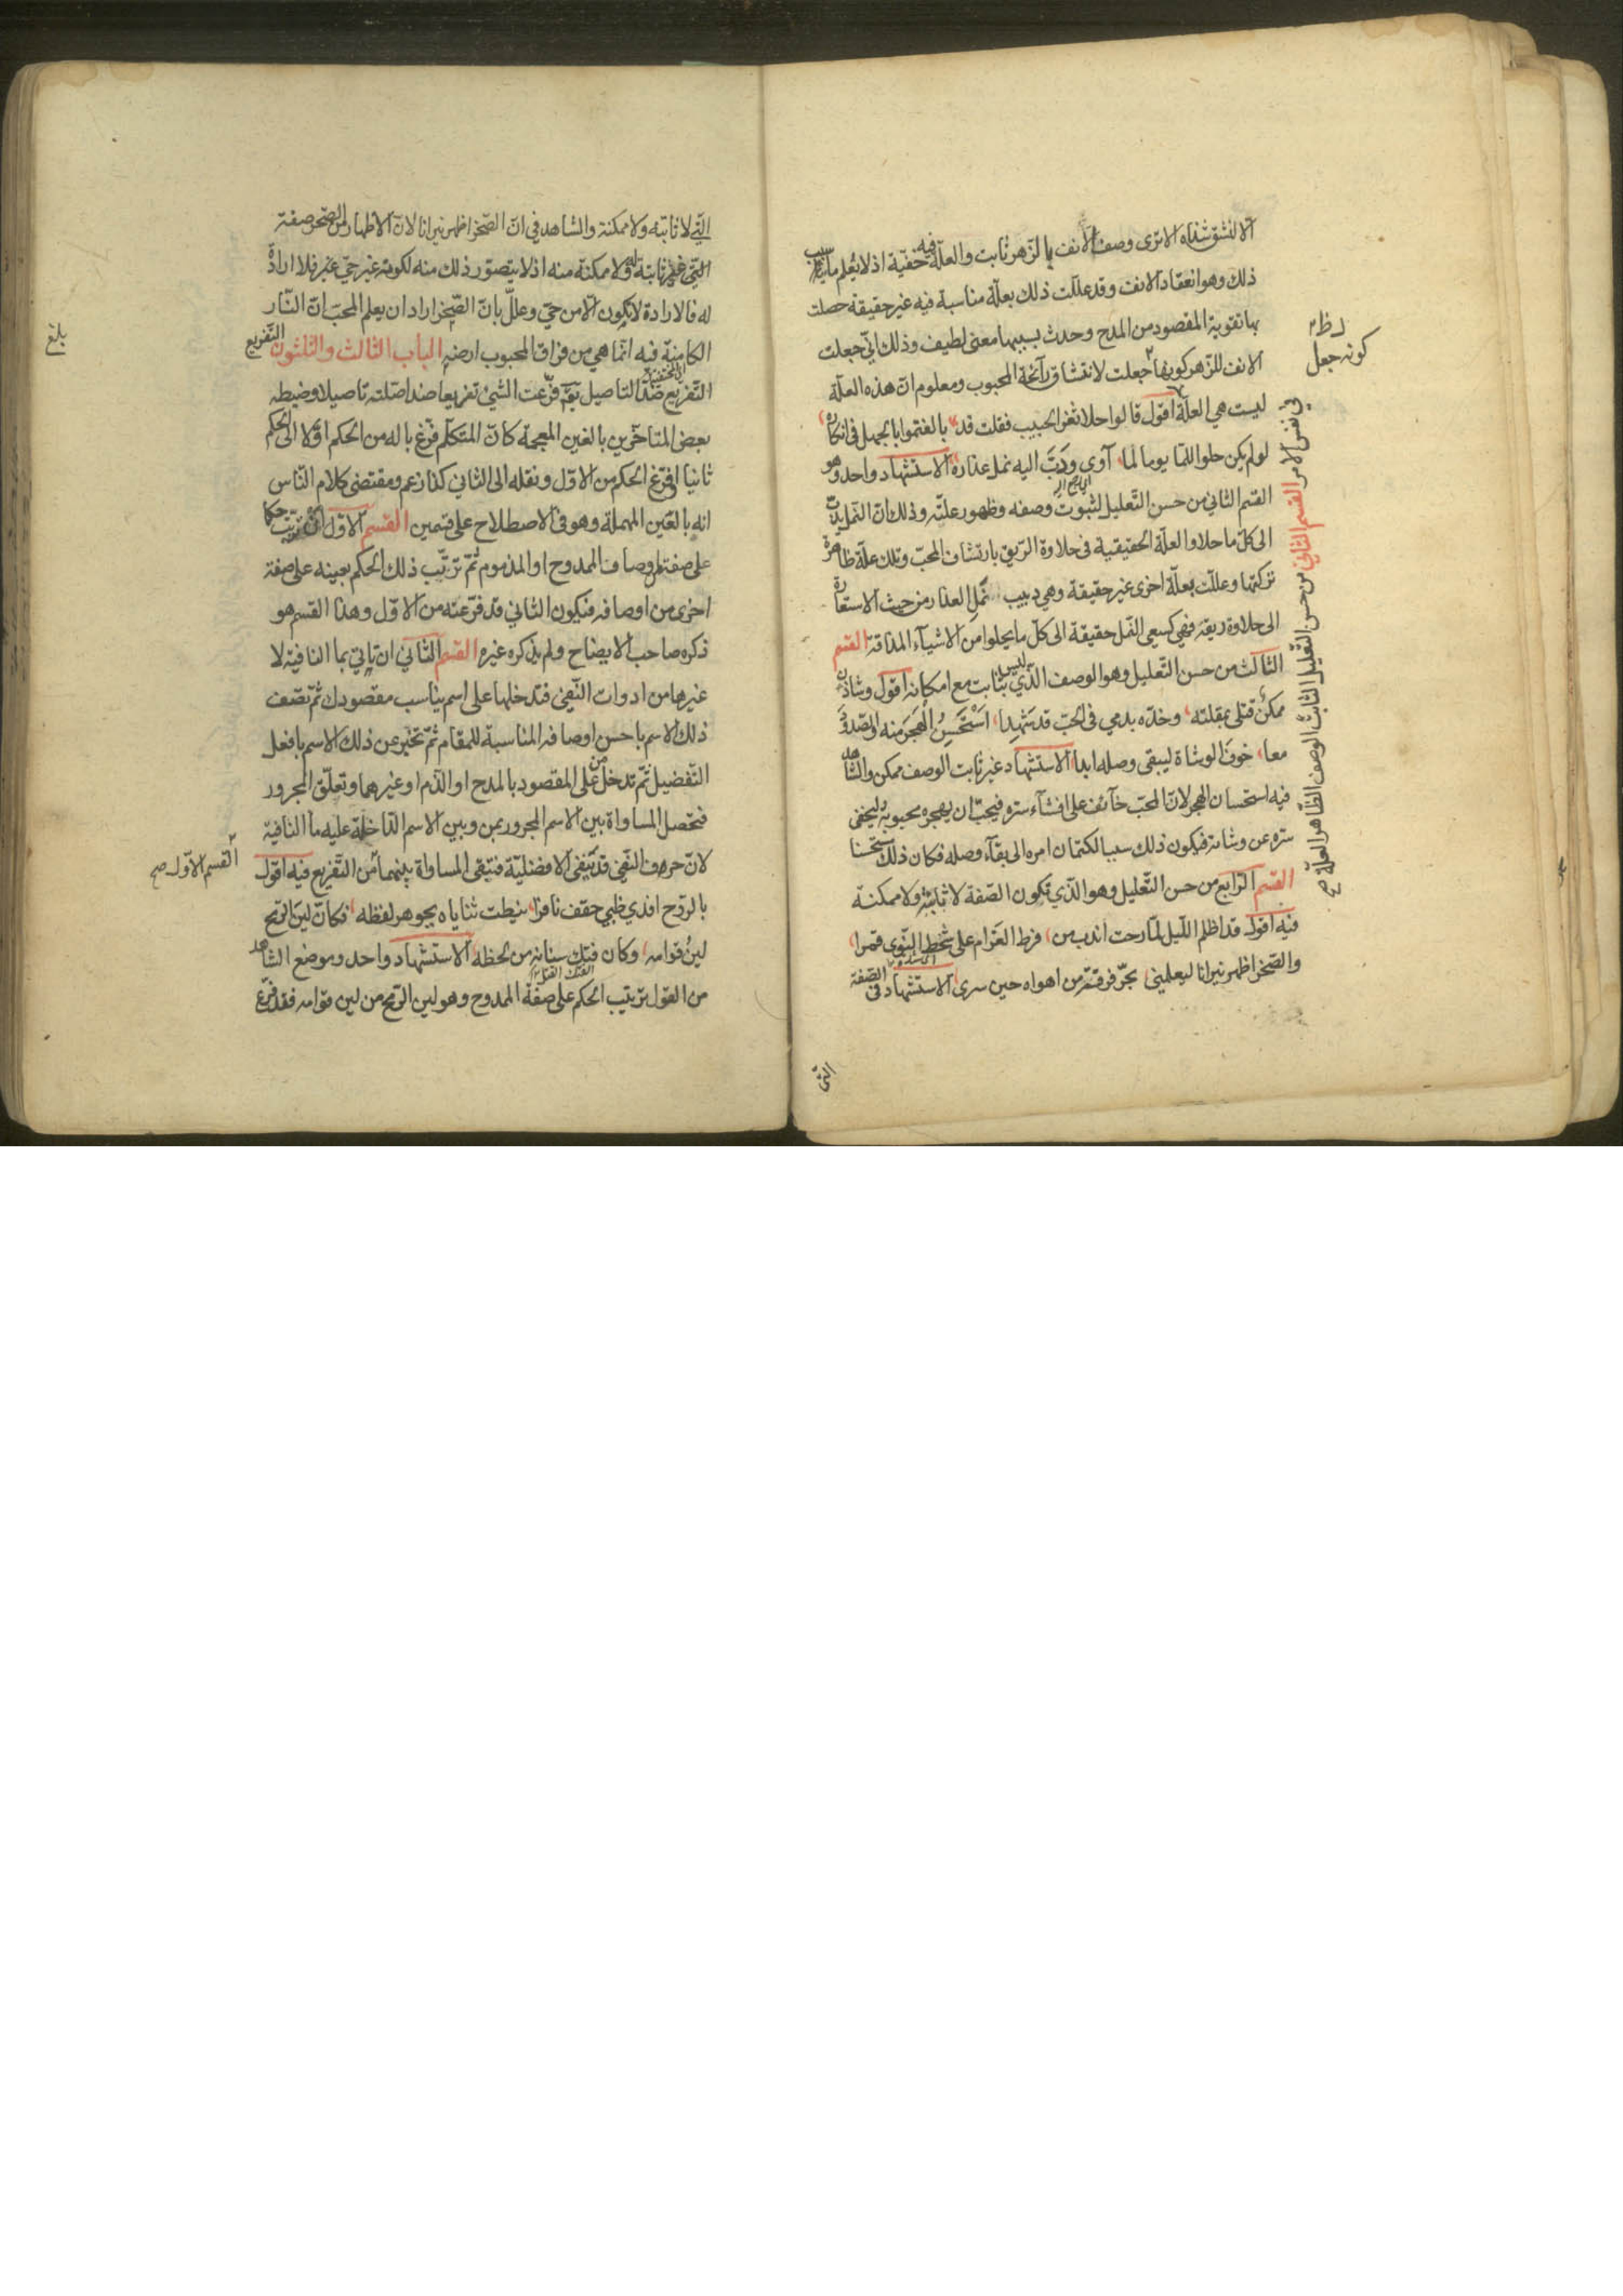 الا لنشق شذاه الا ترى وصف الانف بالزهر ثابت والعلة فيه خفية اذ لا يعلم ما سبب
ذلك وهو انعقاد الانف وقد عللت ذلك بعلة مناسبة فيه غير حقيقة حصلت
بها تقوية المقصود من المدح وحدث بسببها معنى لطيف وذلك اني جعلت
الانف للزهر كونها جعلت لانتشاق رآئحة المحبوب ومعلوم ان هذه العلة
ليست هي العلة اقول قالوا حلا ثغر الحبيب فقلت قد بالغتموا بالجهل في انكاره
لو لم يكن حلو اللما يوما لما آوى ودبّ اليه نمل عذاره الاستشهاد واحد وهو
القسم الثاني من حسن التعليل لثبوت وصفه وظهور علته وذلك ان النمل يدب
الى كل ما حلا والعلة الحقيقية في حلاوة الريق بارتشاف المحب وتلك علة ظاهرة
تركتها وعللت بعلة اخرى غير حقيقة وهي دبيب نمل العذار من حيث الاستعارة
الى حلاوة ريقه فهي كسعي النمل حقيقة الى كل ما يحلوا من الاشياء المذاقة القسم
الثالث من حسن التعليل وهو الوصف الذي ليس بثابت مع امكانه اقول وشاذن
ممكن قتلي بمقلته وخده بدمي في الحب قد شهدا استحسن الهجر منه والصدود
معا خوف الوشاة ليبقى وصله ابدا الاستشهاد غير ثابت الوصف ممكن والشاهد
فيه استحسان الهجر لان المحب خآئف على افشآء سره فيحب ان يهجره محبوبه ليخفى
سره عن وشاته فيكون ذلك سببا لكتمان امره الى بقآء وصله فكان ذلك مستحسنا
القسم الرابع من حسن التعليل وهو الذي تكون الصفة لا ثابتة ولا ممكنة
فيه اقول قد اظلم الليل لما رحت اندب من فرط الغرام على شحط النوى قمرا
والصخر اظهر نيرانا ليعلمني بحر فرقته من اهواه حين سرى الاستشهاد في الصفة
التي
كونه جعل
في نفس الامر القسم الثاني من حسن التعليل الثابت الوصف الظاهر العلة صح
التي لا ثابتة ولا ممكنة والشاهد في ان الصخر اظهر نيرانا لان الاظهار من الصخر صفة
التي غير ثابتة له ولا ممكنة منه اذ لا يتصور ذلك منه لكونه غير حي فلا ارادة
له فالارادة لا تكون الا من حي وعلل بان الصخر اراد ان يعلم المحب ان النار
الكامنة فيه انما هي من فراق المحبوب ارضه الباب الثالث والثلثون التفريع
التفريع ضد التاصيل فرعت الشيء تفريعا ضد اصلته تاصيلا وضبطه
بعض المتاخرين بالغين المعجمة كان المتكلم فرغ باله من الحكم اولا الى الحكم
ثانيا او فرغ الحكم من الاول ونقله الى الثاني كذا زعم ومقتضى كلام الناس
انه بالعين المهملة وهو في الاصطلاح على قسمين القسم الاول ان ترتب حكما
على صفة من اوصاف الممدوح او المذموم ثم ترتب ذلك الحكم بعينه على صفة
اخرى من اوصافه فيكون الثاني قد فرعته من الاول وهذا القسم هو
ذكره صاحب الايضاح ولم يذكره غيره القسم الثاني ان تاتي بما النافية لا
غيرها من ادوات النفي فتدخلها على اسم يناسب مقصودك ثم تصف
ذلك الاسم باحسن اوصافه المناسبة للمقام ثم تخبر عن ذلك الاسم بافعل
التفضيل ثم تدخل من على المقصود بالمدح او الذم او غيرهما وتعلق المجرور
فتحصل المساواة بين الاسم المجرور بمن وبين الاسم الداخلة عليه ما النافية
لان حرف النفي قد نفى الافضلية فتبقى المساواة بينهما من التفريع فيه اقول
بالروح افدي ظبي حقف نافرا نيطت ثناياه بجوهر لفظه فكان لين الرمح
لين قوامه وكان فتك سنانه من لحظه الاستشهاد واحد وموضع الشاهد
من القول ترتيب الحكم على صفة الممدوح وهو لين الرمح من لين قوامه فقد فرع
بلغ
القسم الاول صح